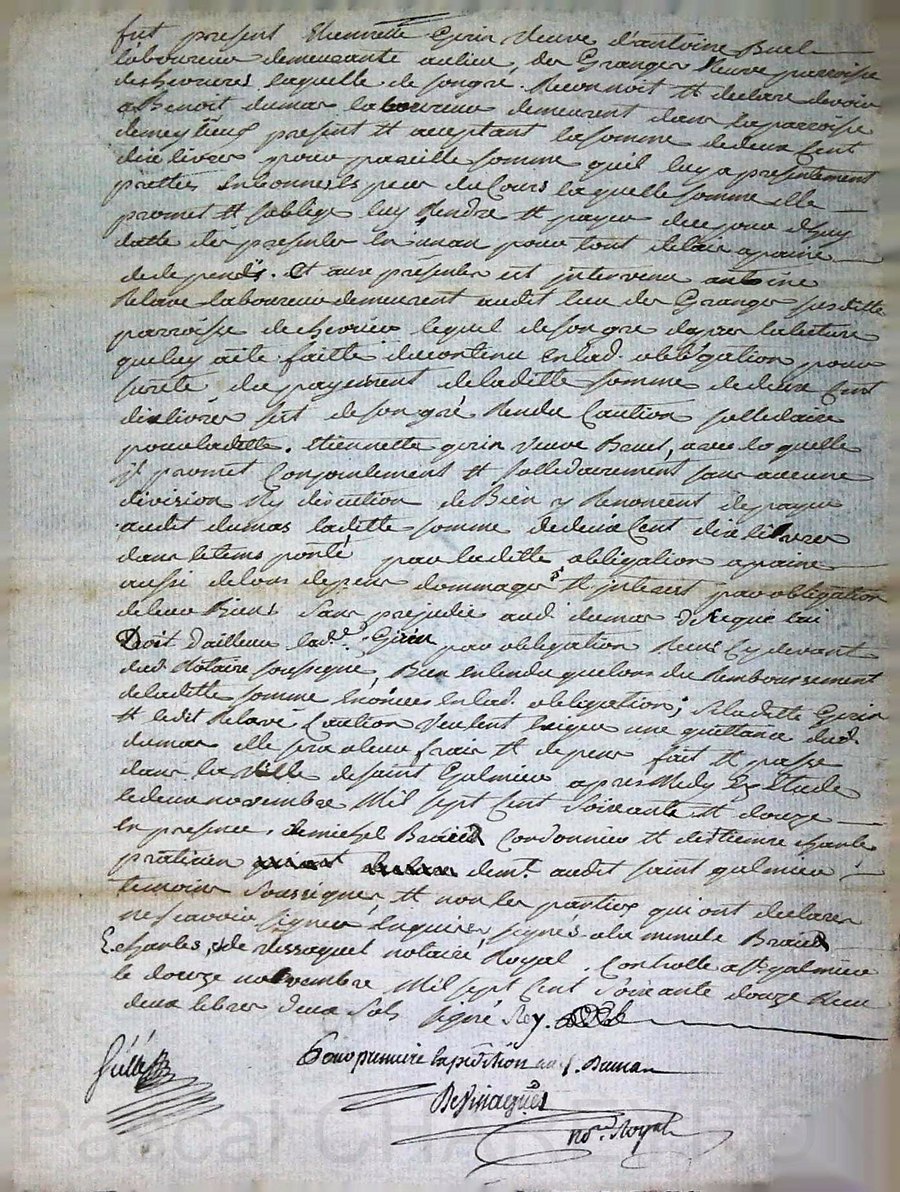 fut present Etiennette Gerin Veuve d'antoine Buel
laboureur demeurante aulieu des Granges Neuve parroisse
dechevrieres laquelle de songré Reconnoit et declare devoir
a Benoit dumas laboureur demeurent dans la parroisse
demeylieux present et aceptant la somme dedeux Cent
dix livres pour pareille somme quil luy a presentement
prettes enbonnes especes du Cours laquelle somme elle
promet et soblige luy Rendre et payer dece jour dhuy
datte des presentes en unan pour tout delais apeine
dedepends. Et aux presentes est intervenu antoine
Relave laboureur demeurent audit lieu des Granges susditte
parroisse dechevrieres lequel desongre dapres lalecture
queluy aete faitte ducontenu enlad. obligation pour
sureté du payement deladitte somme dedeux Cent
dix livres sest desongré Rendu Caution sollidaire
pour laditte. Etiennette gerin Veuve Buel, avec laquelle
il promet Conjointement et sollidairement sans aucune
division Ny discution de Bien y Renoncent depayer
audit dumas laditte somme dedeux Cent dix livres
dans letems porté par laditte obligation apeine
aussi detous depens dommages et interest par obligation
deleur Biens Sans prejudice aud. dumas dece que lui
Doit d'ailleur lad.e Gerin par obligation Recus Cy devant
dud. Notaire soussigné, Bien entendu quelors du Remboursement
deladitte somme enoncée enlad. obligation; siladitte Gerin
et ledit Relave Caution Veulent Exiger une quittance dud.
dumas elle sera aleur frais et depens fait et passe
dans la Ville desaint Galmier apres Midy Es Etude
ledeux novembre Mil sept Cent Soixante et douze
en presence. demichel Braird Cordonnier et detienne charles
praticien demt. audit saint galmier
temoins Soussignes et non les parties qui ont declarer
nescavoir signer Enquises signés ala minute Braird
Echarles, et de vissaguet notaire Royal. Controlle a St. galmier
le douze novembre Mil sept Cent Soixante douze Recu
deux livres deux Sols signé Rey.
Pour premiere Expedition au S. Dumas
Devissaguet
No.re Royal
Pascal CHARETTE ©